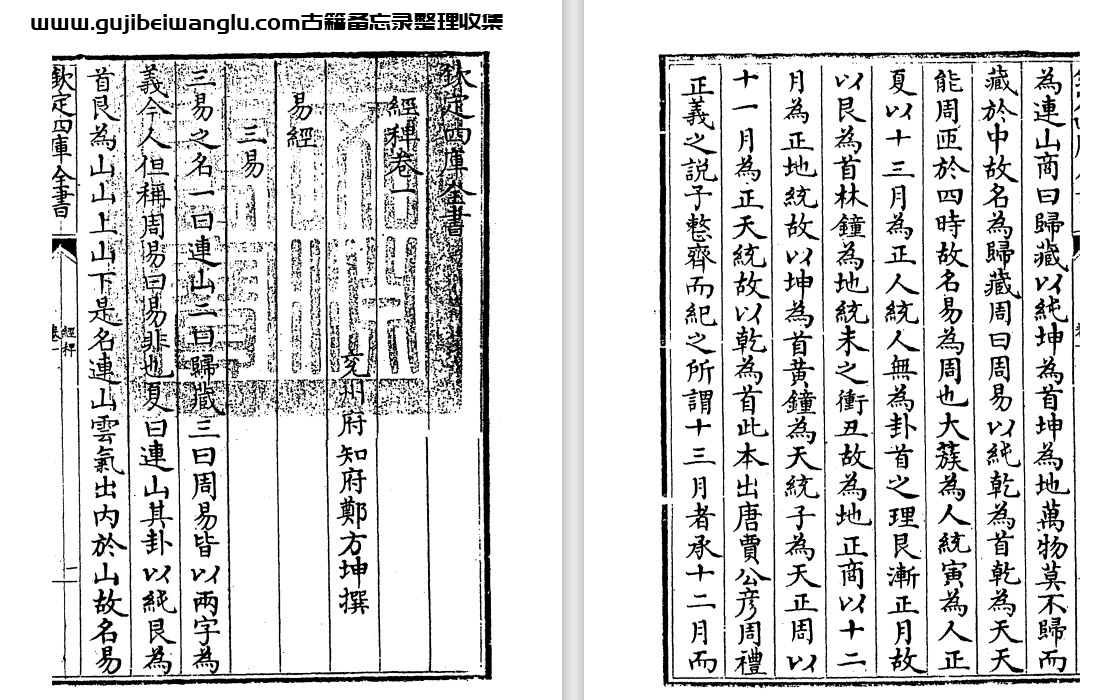 www.gujibeiwanglu.com古籍备忘录整理收集
欽定四庫全書
經稗卷一
兖州府知府鄭方坤撰
易經
三易
三易之名一曰連山二曰歸藏三曰周易皆以兩字為
義今人但稱周易曰易非也夏曰連山其卦以純艮為
首艮為山山上山下是名連山雲氣出内於山故名易
欽定四庫全書
經稗
卷一
一
為連山商曰歸藏以純坤為首坤為地萬物莫不歸而
藏於中故名為歸藏周曰周易以純乾為首乾為天天
能周匝於四時故名易為周也大蔟為人統寅為人正
夏以十三月為正人統人無為卦首之理艮漸正月故
以艮為首林鐘為地統未之衝丑故為地正商以十二
月為正地統故以坤為首黄鐘為天統子為天正周以
十一月為正天統故以乾為首此本出唐賈公彦周禮
正義之說予整齊而紀之所謂十三月者承十二月而